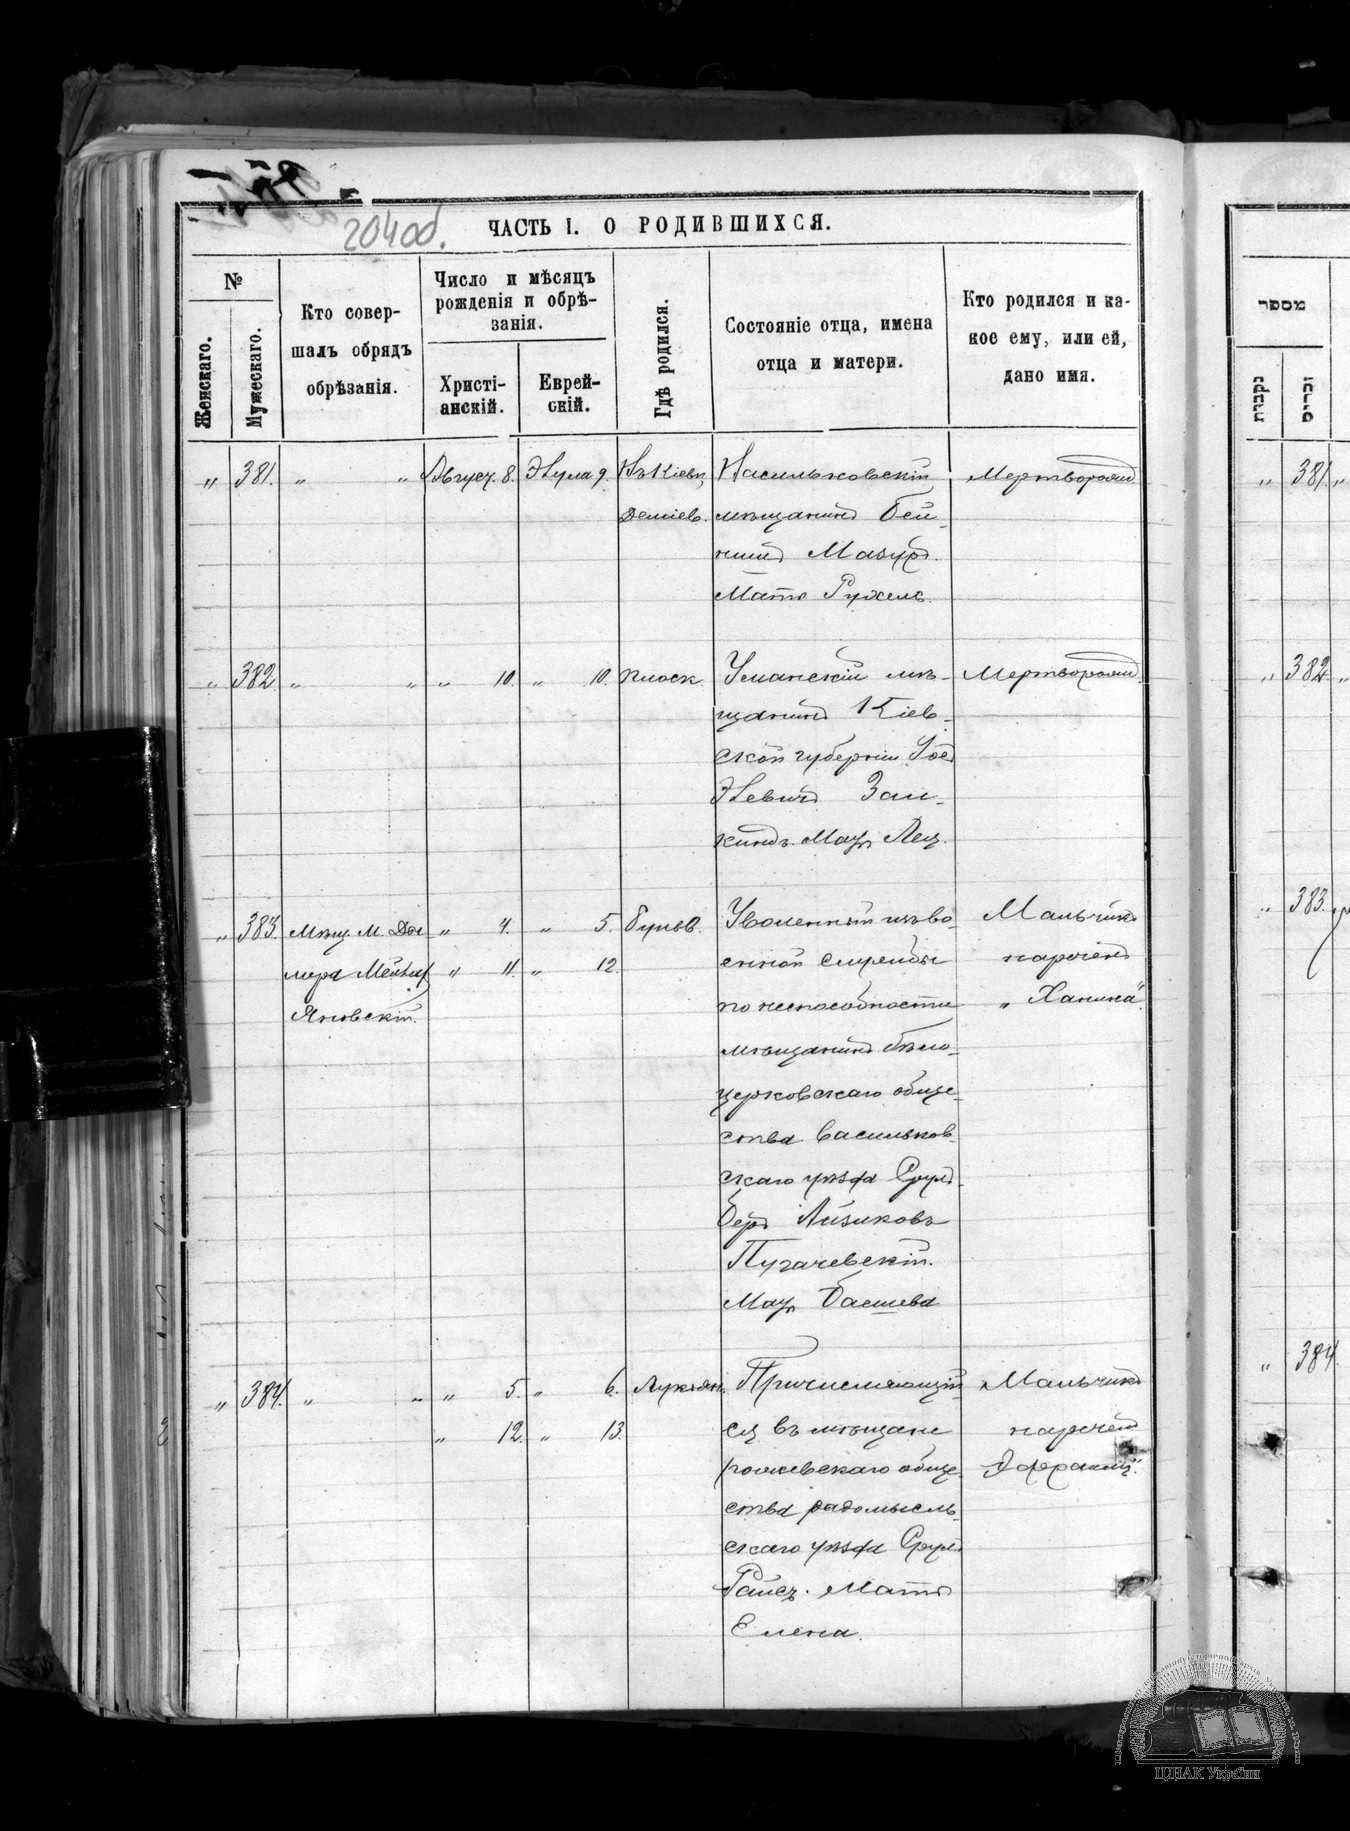 204об.
ЧАСТЬ I. О РОДИВШИХСЯ.
№
Женскаго.
Мужескаго.
Кто совер-
шалъ обрядъ
обрѣзанія.
Число и мѣсяцъ
рожденія и обрѣ-
занія.
Христі-
анскій.
Еврей-
скій.
Гдѣ родился.
Состояніе отца, имена
отца и матери.
Кто родился и ка-
кое ему, или ей,
дано имя.
„ 381. „ „ Август. 8. 9. Въ Кіевѣ,
Деміев.
Васильковскій
мѣщанинъ Бей-
нишъ Мазуръ.
Мать Рухель.
Мертворожд
„ 382 „ „ „ 10. „ 10. Плоск.
Уманскій мѣ-
щанинъ Кіев-
ской губерніи
Зал-
киндъ. Мать
Мертворожд.
„ 383. Мѣщ. М.
Яновскій.
„ 4. „ 5. Бульв.
„ 11. „ 12.
Уволенный изъ во
енной службы
по неспособности
мѣщанинъ бѣло-
церковскаго обще-
ства васильков-
скаго уѣзда Сруль-
Беръ Айзиковъ
Пугачевскій.
Мать Басшева
Мальчикъ
нареченъ
„Ханина"
„ 384. „ „ „ 5. „ 6. Лукьян.
„ 12. „ 13.
Причисляющій-
ся въ мѣщане
обще-
ства радомысль-
скаго уѣзда Сруль
Райсъ. Мать
Елена.
Мальчикъ
нареченъ
„Эфраимъ".
מספר
נקבות
זכרים
„ 381. „
„ 382 „
„ 383.
„ 384.
ЦДІАК України